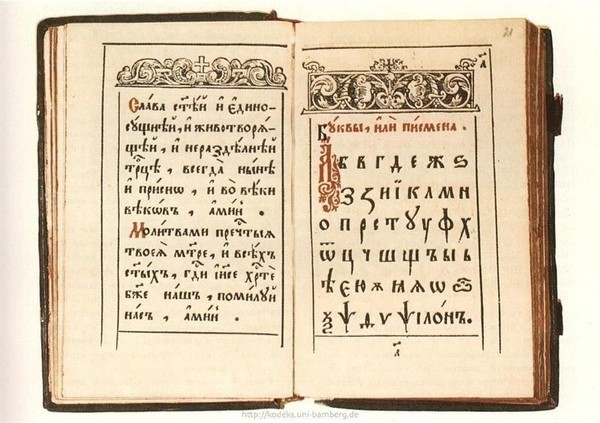 Сла́ва ст҃ѣ́й и҆ є҆дино-
сꙋ́щнѣй, и҆ животворѧ́-
щей, и҆ нераздѣ́лнѣй
трⷪ҇цѣ, всегда̀ ны́нѣ
и҆ при́снѡ, и҆ во̀ вѣ́ки
вѣкѡ́въ, а҆ми́нь .
Моли́твами пречⷭ҇тыѧ
твоеѧ̀ мт҃ре, и҆ всѣ́хъ
ст҃ы́хъ, гдⷭ҇и і҆и҃се хрⷭ҇тѐ
бж҃е на́шъ, поми́лꙋй
на́съ, а҆ми́нь .
21
Бꙋ́квы, и҆лѝ пи́смена .
А Б В Г Д Е Ж Ѕ
З Ꙁ И Ї К Л М Н
О П Р С Т Ꙋ У Ф Х
Ѿ Ц Ч Ш Щ Ъ Ы Ь
Ѣ Є Ю Ѫ Ꙗ Ѧ Ѡ
Ѯ Ѱ Д Ѵ Ѱїло́нъ .
http://kodeks.uni-bamberg.de